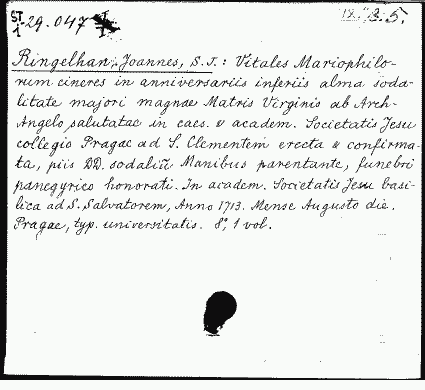 ST 1 -29.047
IX. B. 5.
Ringelhan, Joannes, S. J.: Vitales Mariophilo-
rum cineres in anniversariis inferiis alma soda-
litate majori magnae Matris Virginis ab Arch-
Angelo salutatae in caes. & academ. Societatis Jesu
collegio Pragae ad S. Clementem erecta & confirma-
ta, piis DD. sodaliũ Manibus parentante, funebri
panegyrico honorati. In academ. Societatis Jesu basi-
lica ad S. Salvatorem, Anno 1713. Mense Augusto die.
Pragae, typ. universitatis. 8°, 1 vol.